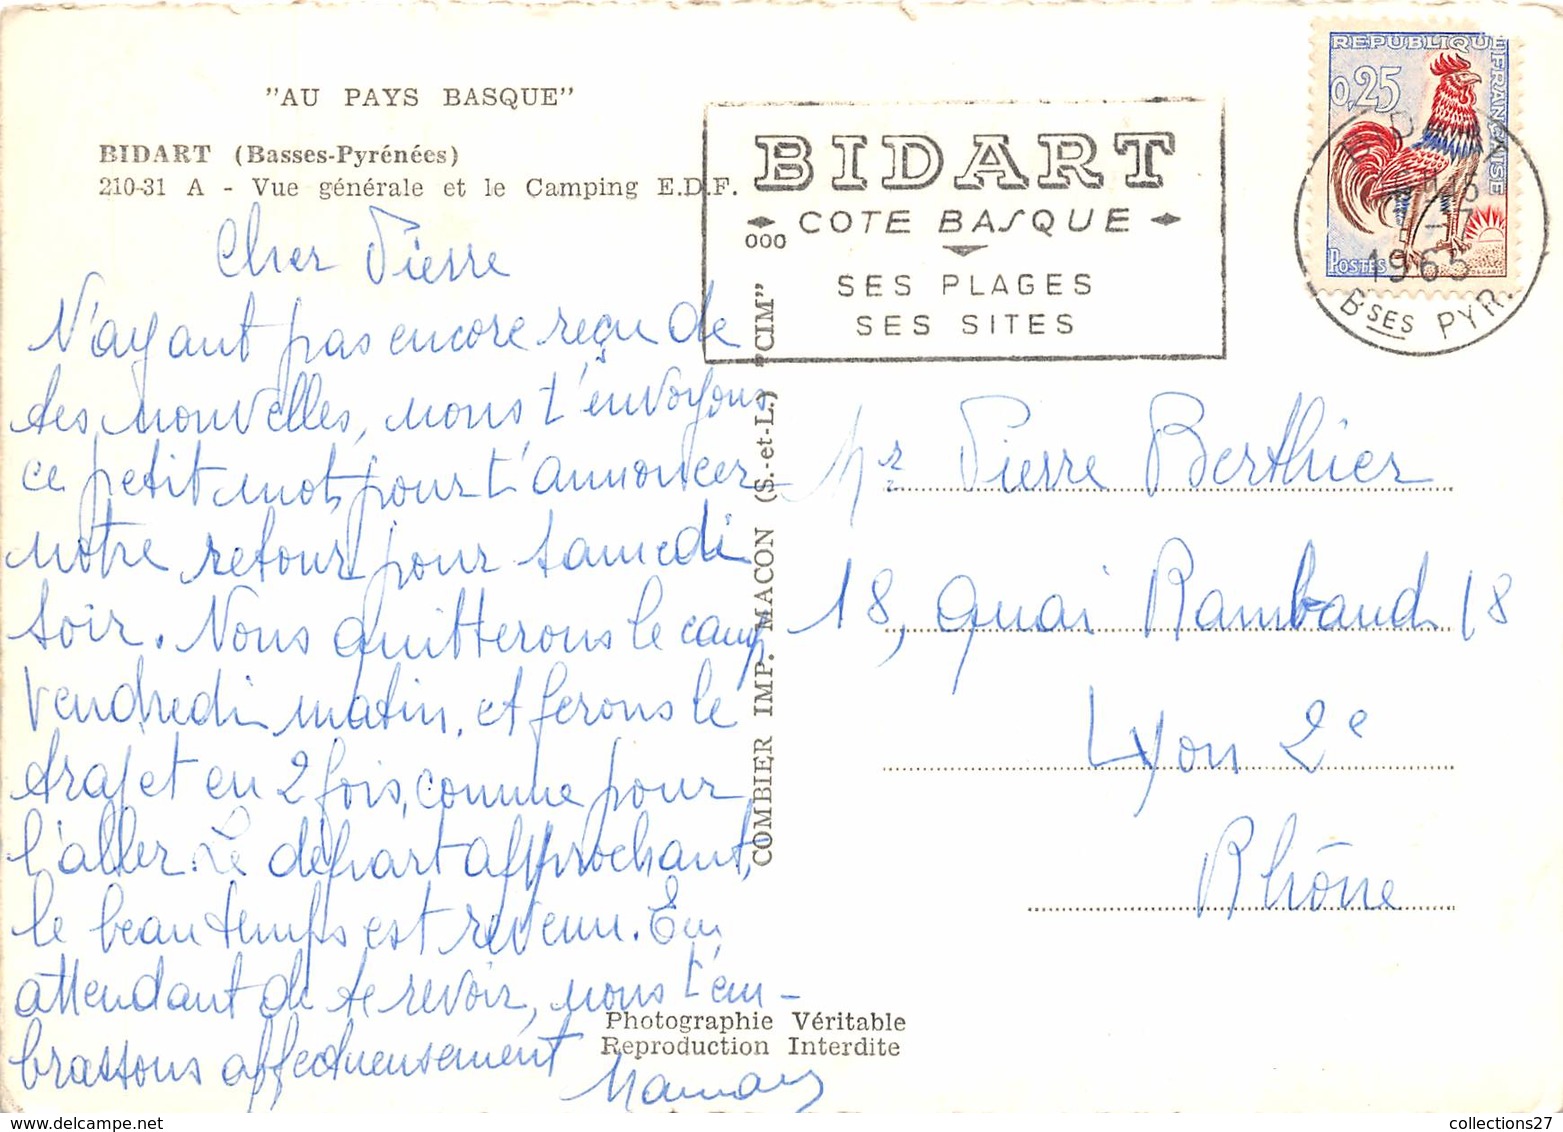 "AU PAYS BASQUE"
BIDART (Basses-Pyrénées)
210-31 A - Vue générale et le Camping E.D.F.
Cher Pierre
N'ayant pas encore reçu de
tes nouvelles, nous t'envoyons
ce petit mot, pour t'annoncer
notre retour pour samedi
soir. Nous quitterons le camp
vendredi matin, et ferons le
trajet en 2 fois, comme pour
l'aller. Le départ approchant,
le beau temps est revenu. En
attendant de te revoir, nous t'em-
brassons affectueusement
Maman
COMBIER IMP. MACON (S.-et-L.) "CIM"
Photographie Véritable
Reproduction Interdite
BIDART
COTE BASQUE
000
SES PLAGES
SES SITES
REPUBLIQUE FRANCAISE
0,25
POSTES
1965
BSES PYR.
Mr Pierre Berthier
18, quai Rambaud 18
Lyon 2e
Rhône
collections27